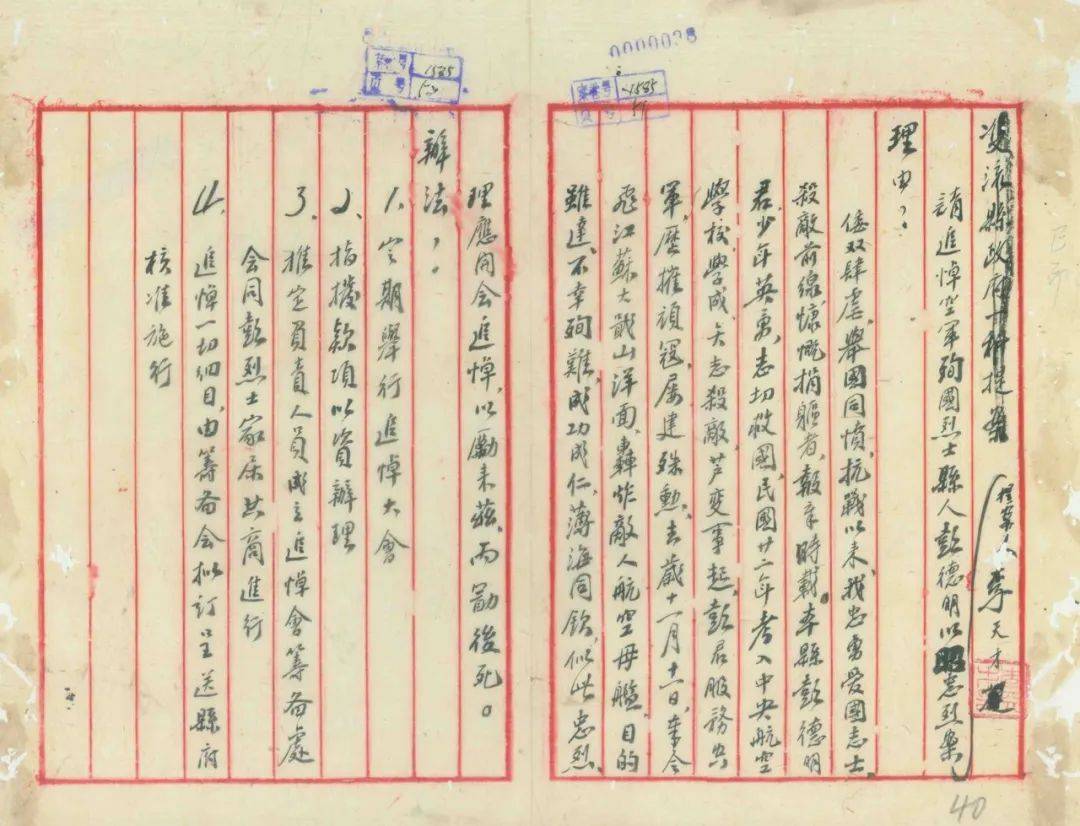 0000038
案卷号 1585
页号 59
双流县政府一科提案
提案人 李天才
請追悼空軍殉國烈士縣人彭德明以昭忠烈案
理由:
倭奴肆虐、舉國同憤、抗戰以来、我忠勇愛國志士、
殺敵前線、慷慨捐軀者、報章時載。本縣彭德明
君、少年英勇、志切救國、民國廿二年考入中央航空
學校、學成、矢志殺敵、芦变事起、彭君服務空
軍、歷摧頑寇、屡建殊勳、去歲十一月十一日、奉令
飛江蘇大戢山洋面、轟炸敵人航空母艦、目的
雖達、不幸殉難、成功成仁、薄海同欽、似此忠烈、
案卷号 1585
页号
理應開会追悼、以勵来兹、而勗後死。
辦法:
1、定期舉行追悼大會
2、指撥款項以資辦理
3、推定負責人員成立追悼會籌备處
会同彭烈士家属共商進行
4、追悼一切細目、由籌备会拟訂呈送縣府
核准施行
40